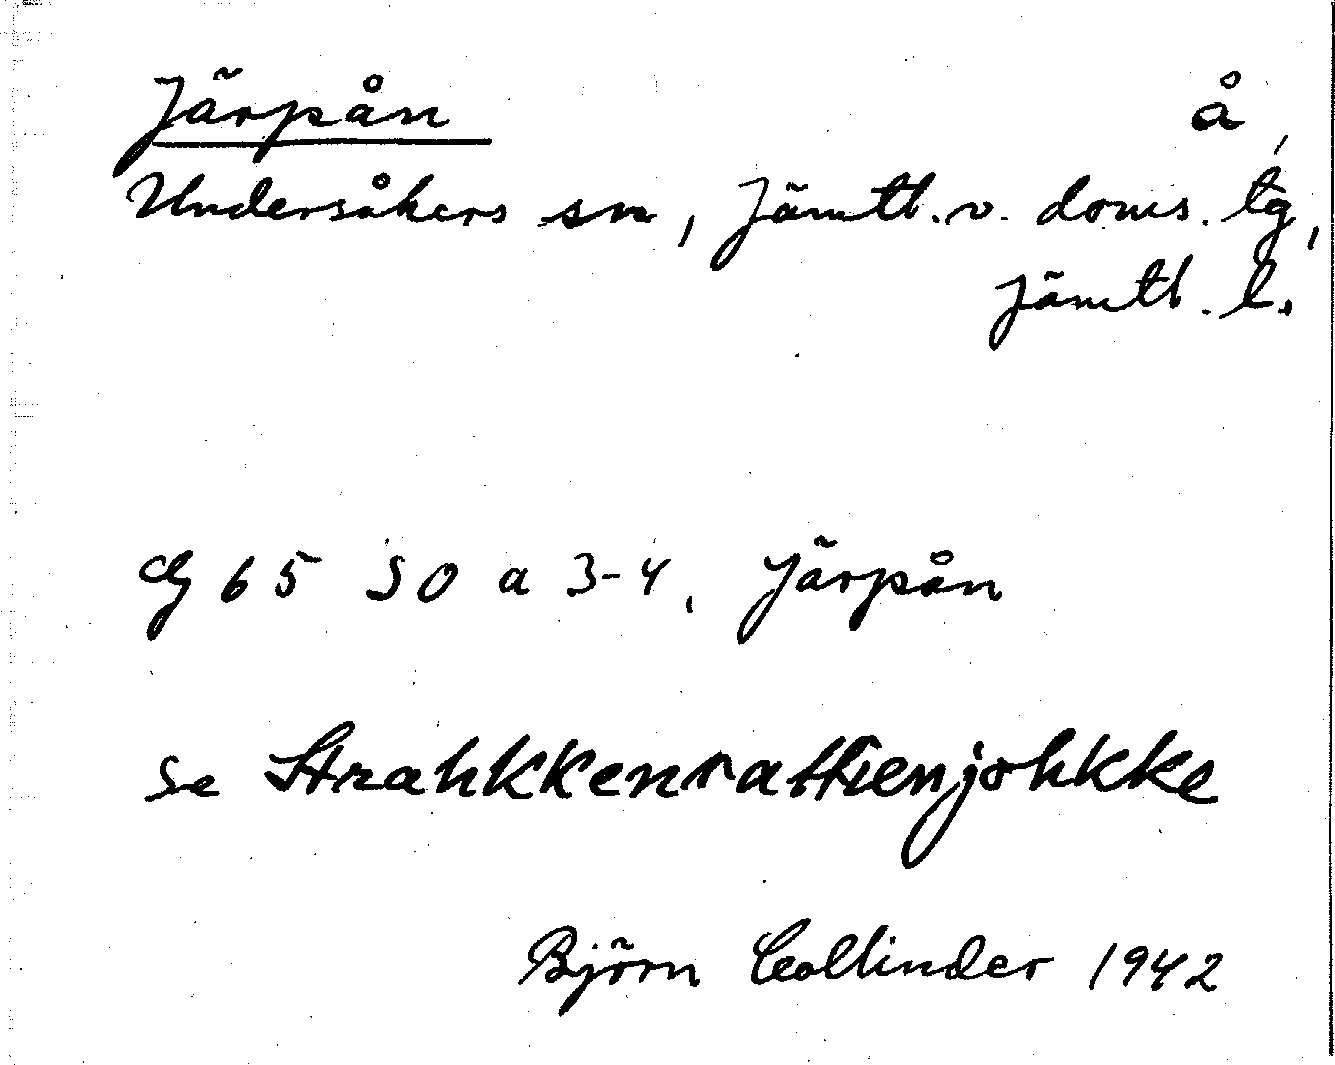 Järpån å,
Undersåkers sn, Jämtl. v. doms. tg,
Jämtl. l.
G 65 SO a 3-4, Järpån
Se Strahkkenvattienjohkke
Björn Collinder 1942